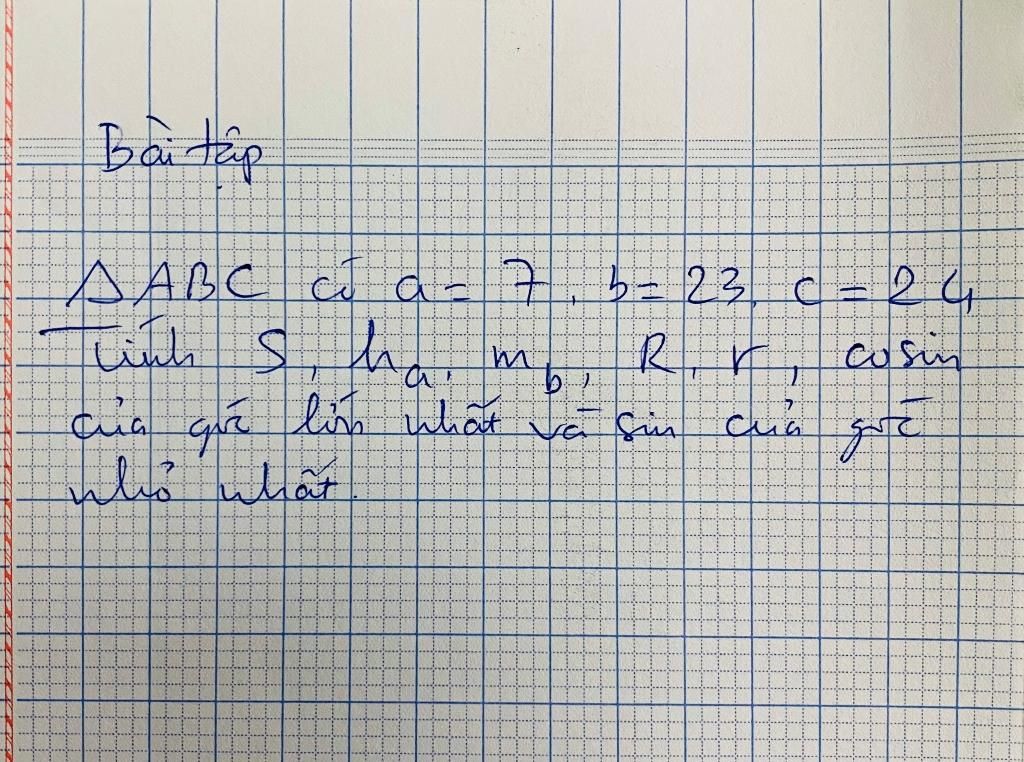 Bài tập
△ABC có a = 7, b = 23, c = 24
Tính S, hₐ, m_b, R, r, cosin
của góc lớn nhất và sin của góc
nhỏ nhất.